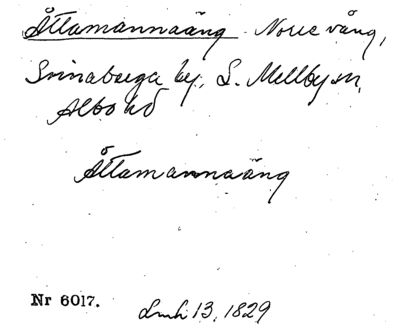 Åttamannaäng Norre vång,
Svinaberga by, S. Mellby sn,
Albo hd
Åttamannaäng
Nr 6017.
Lmh 13, 1829